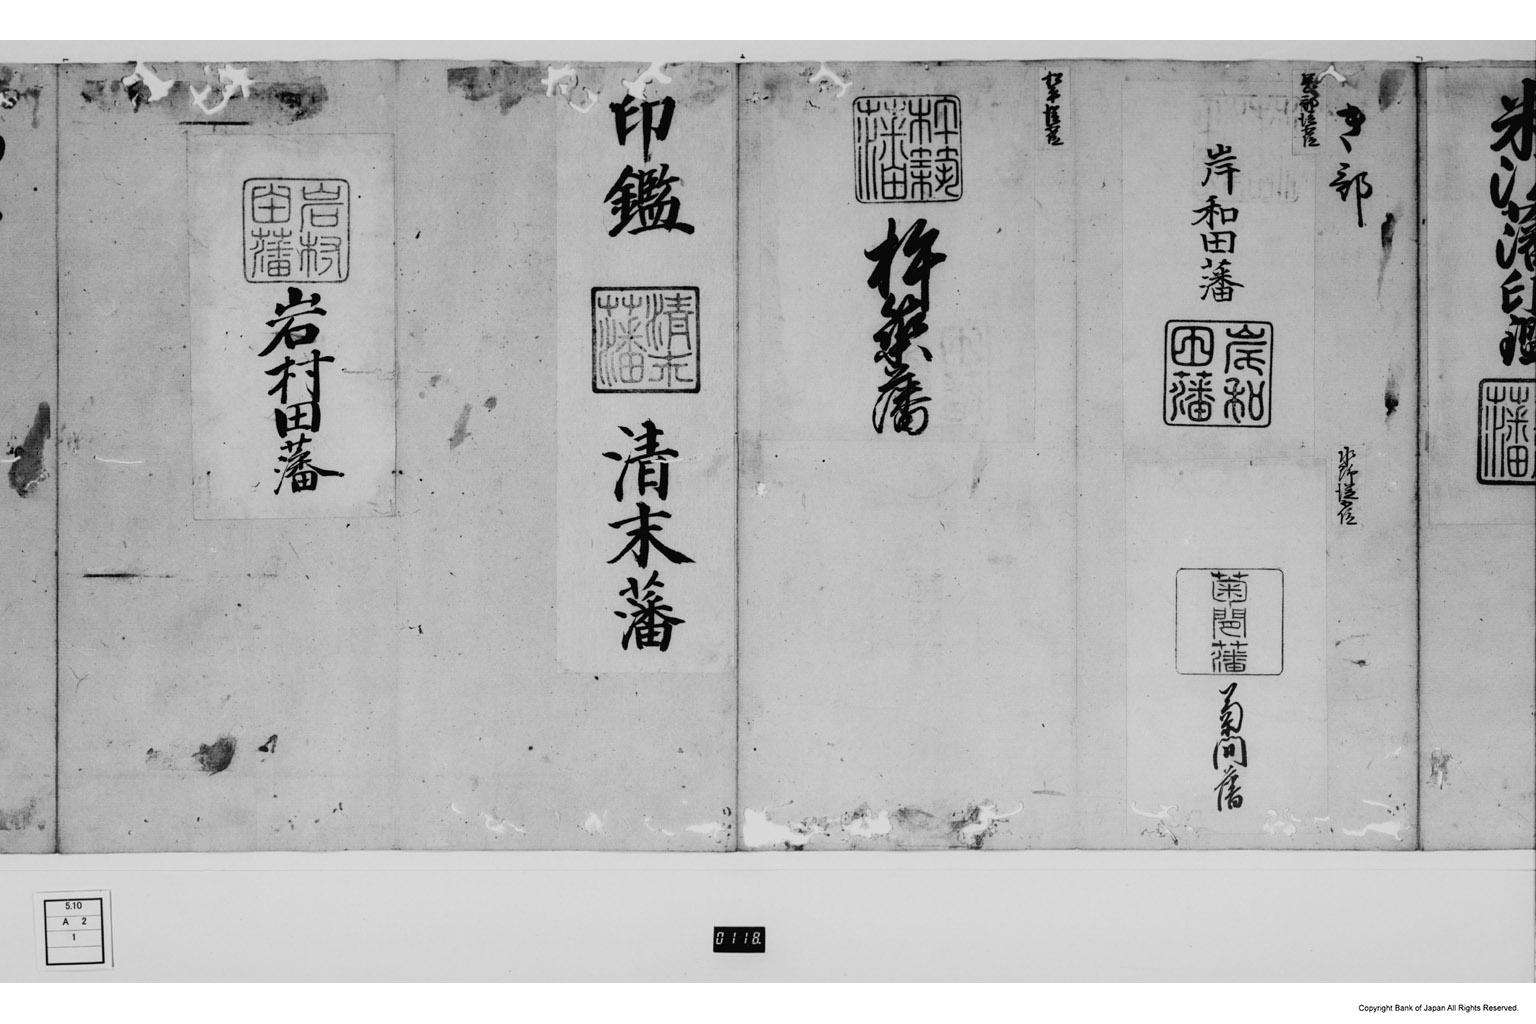 米沢藩印鑑
き部
岸和田藩
岸和
田藩
水野従五位
菊間藩
菊間藩
松平従五位
杵築
藩
杵築藩
印鑑
清末
藩
清末藩
岩村
田藩
岩村田藩
5.10
A 2
1
0118.
Copyright Bank of Japan All Rights Reserved.